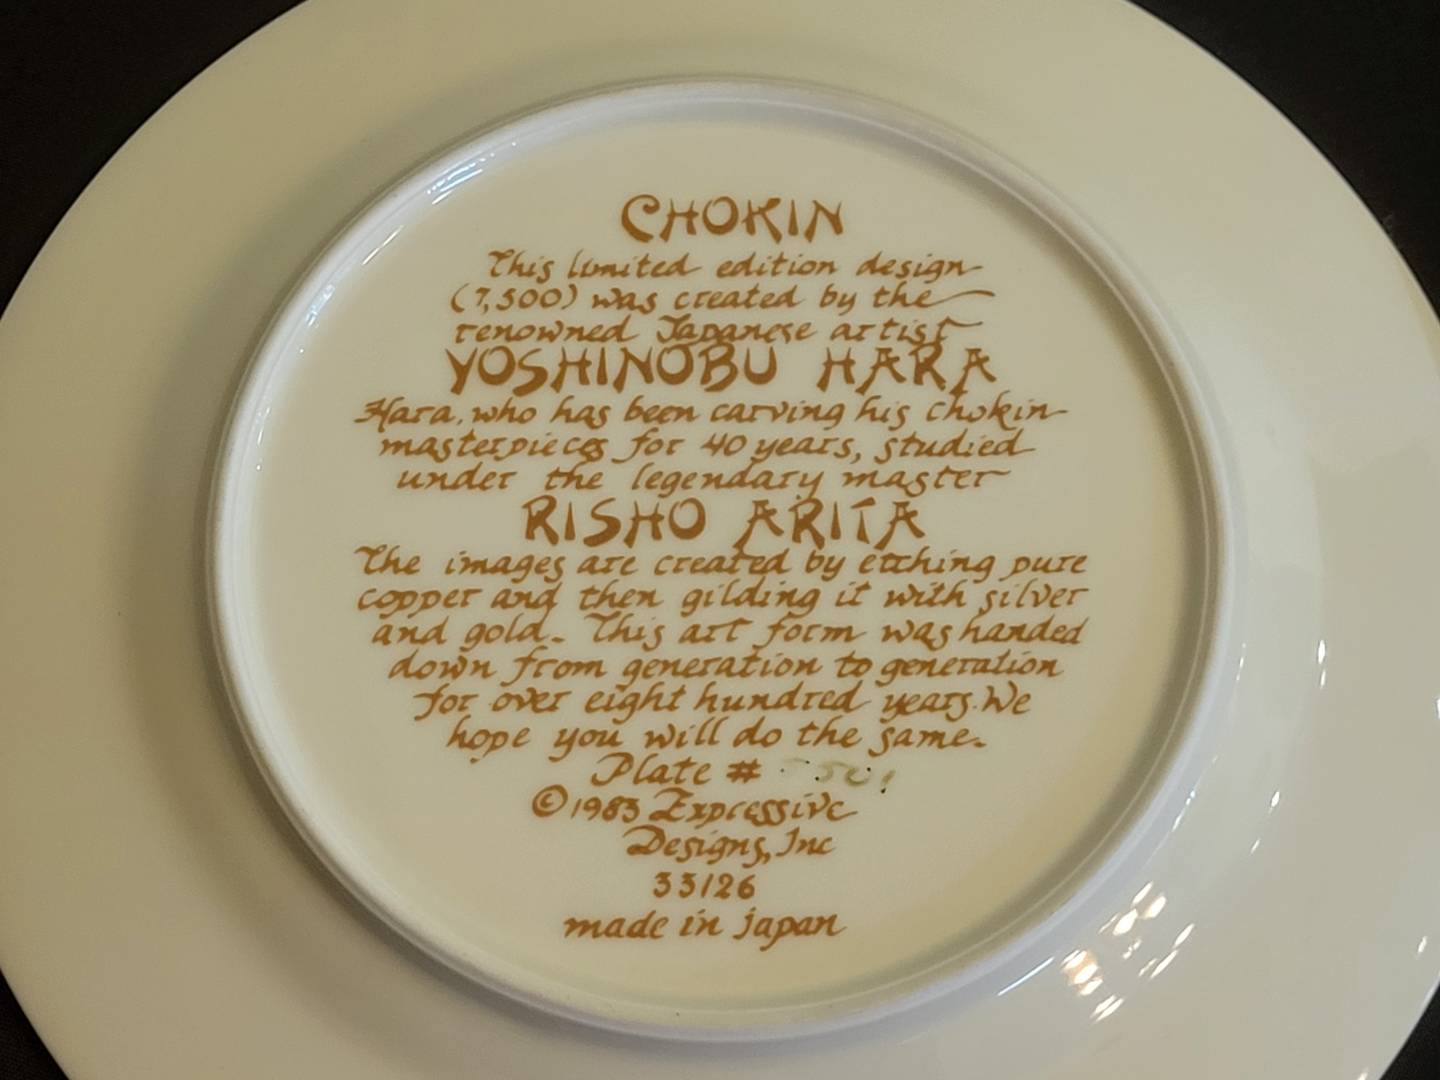 CHOKIN
This limited edition design
(7,500) was created by the
renowned Japanese artist
YOSHINOBU HARA
Hara, who has been carving his chokin
masterpieces for 40 years, studied
under the legendary master
RISHO ARITA
The images are created by etching pure
copper and then gilding it with silver
and gold. This art form was handed
down from generation to generation
for over eight hundred years. We
hope you will do the same.
Plate #
©1983 Expressive
Designs, Inc
33126
made in japan